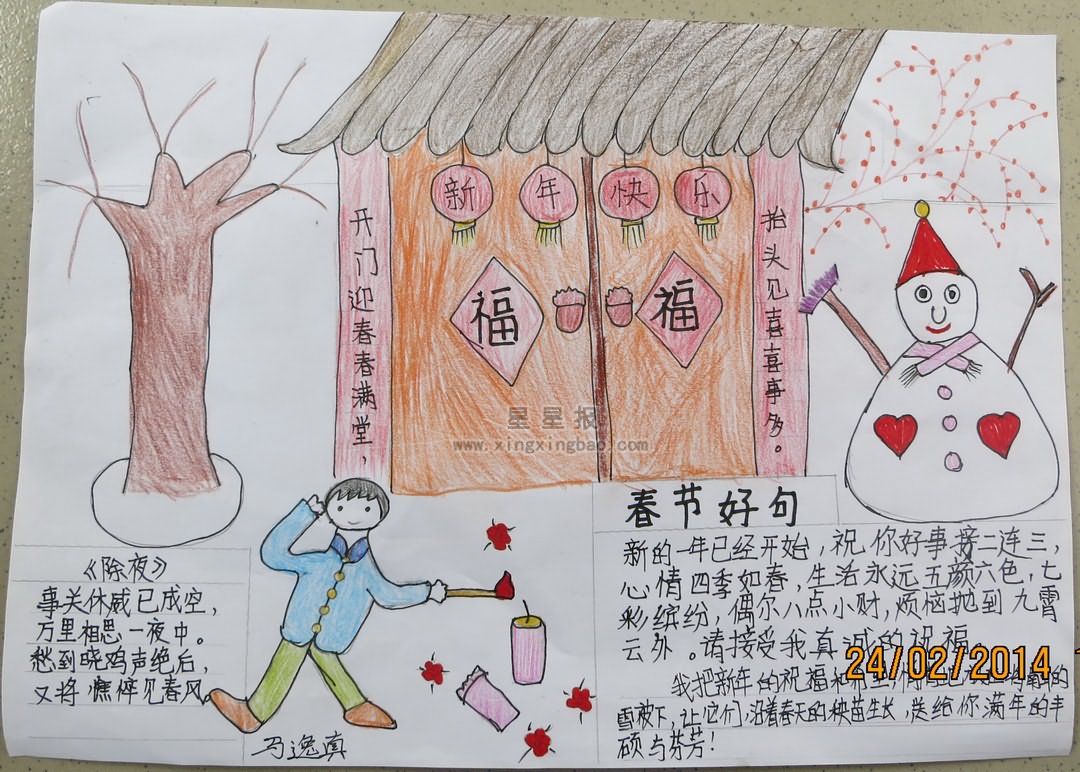 新年快乐
开门迎春春满堂，
抬头见喜喜事多。
福
福
星星报
www.xingxingbao.com
《除夜》
事关休戚已成空，
万里相思一夜中。
愁到晓鸡声绝后，
又将憔悴见春风
马逸真
春节好句
新的一年已经开始，祝你好事接二连三，
心情四季如春，生活永远五颜六色，七
彩缤纷，偶尔八点小财，烦恼抛到九霄
云外。请接受我真诚的祝福。
24/02/2014
我把新年的祝福和希望，悄悄
的
雪被下，让它们沿着春天的秧苗生长，送给你满年的丰
硕与芬芳！